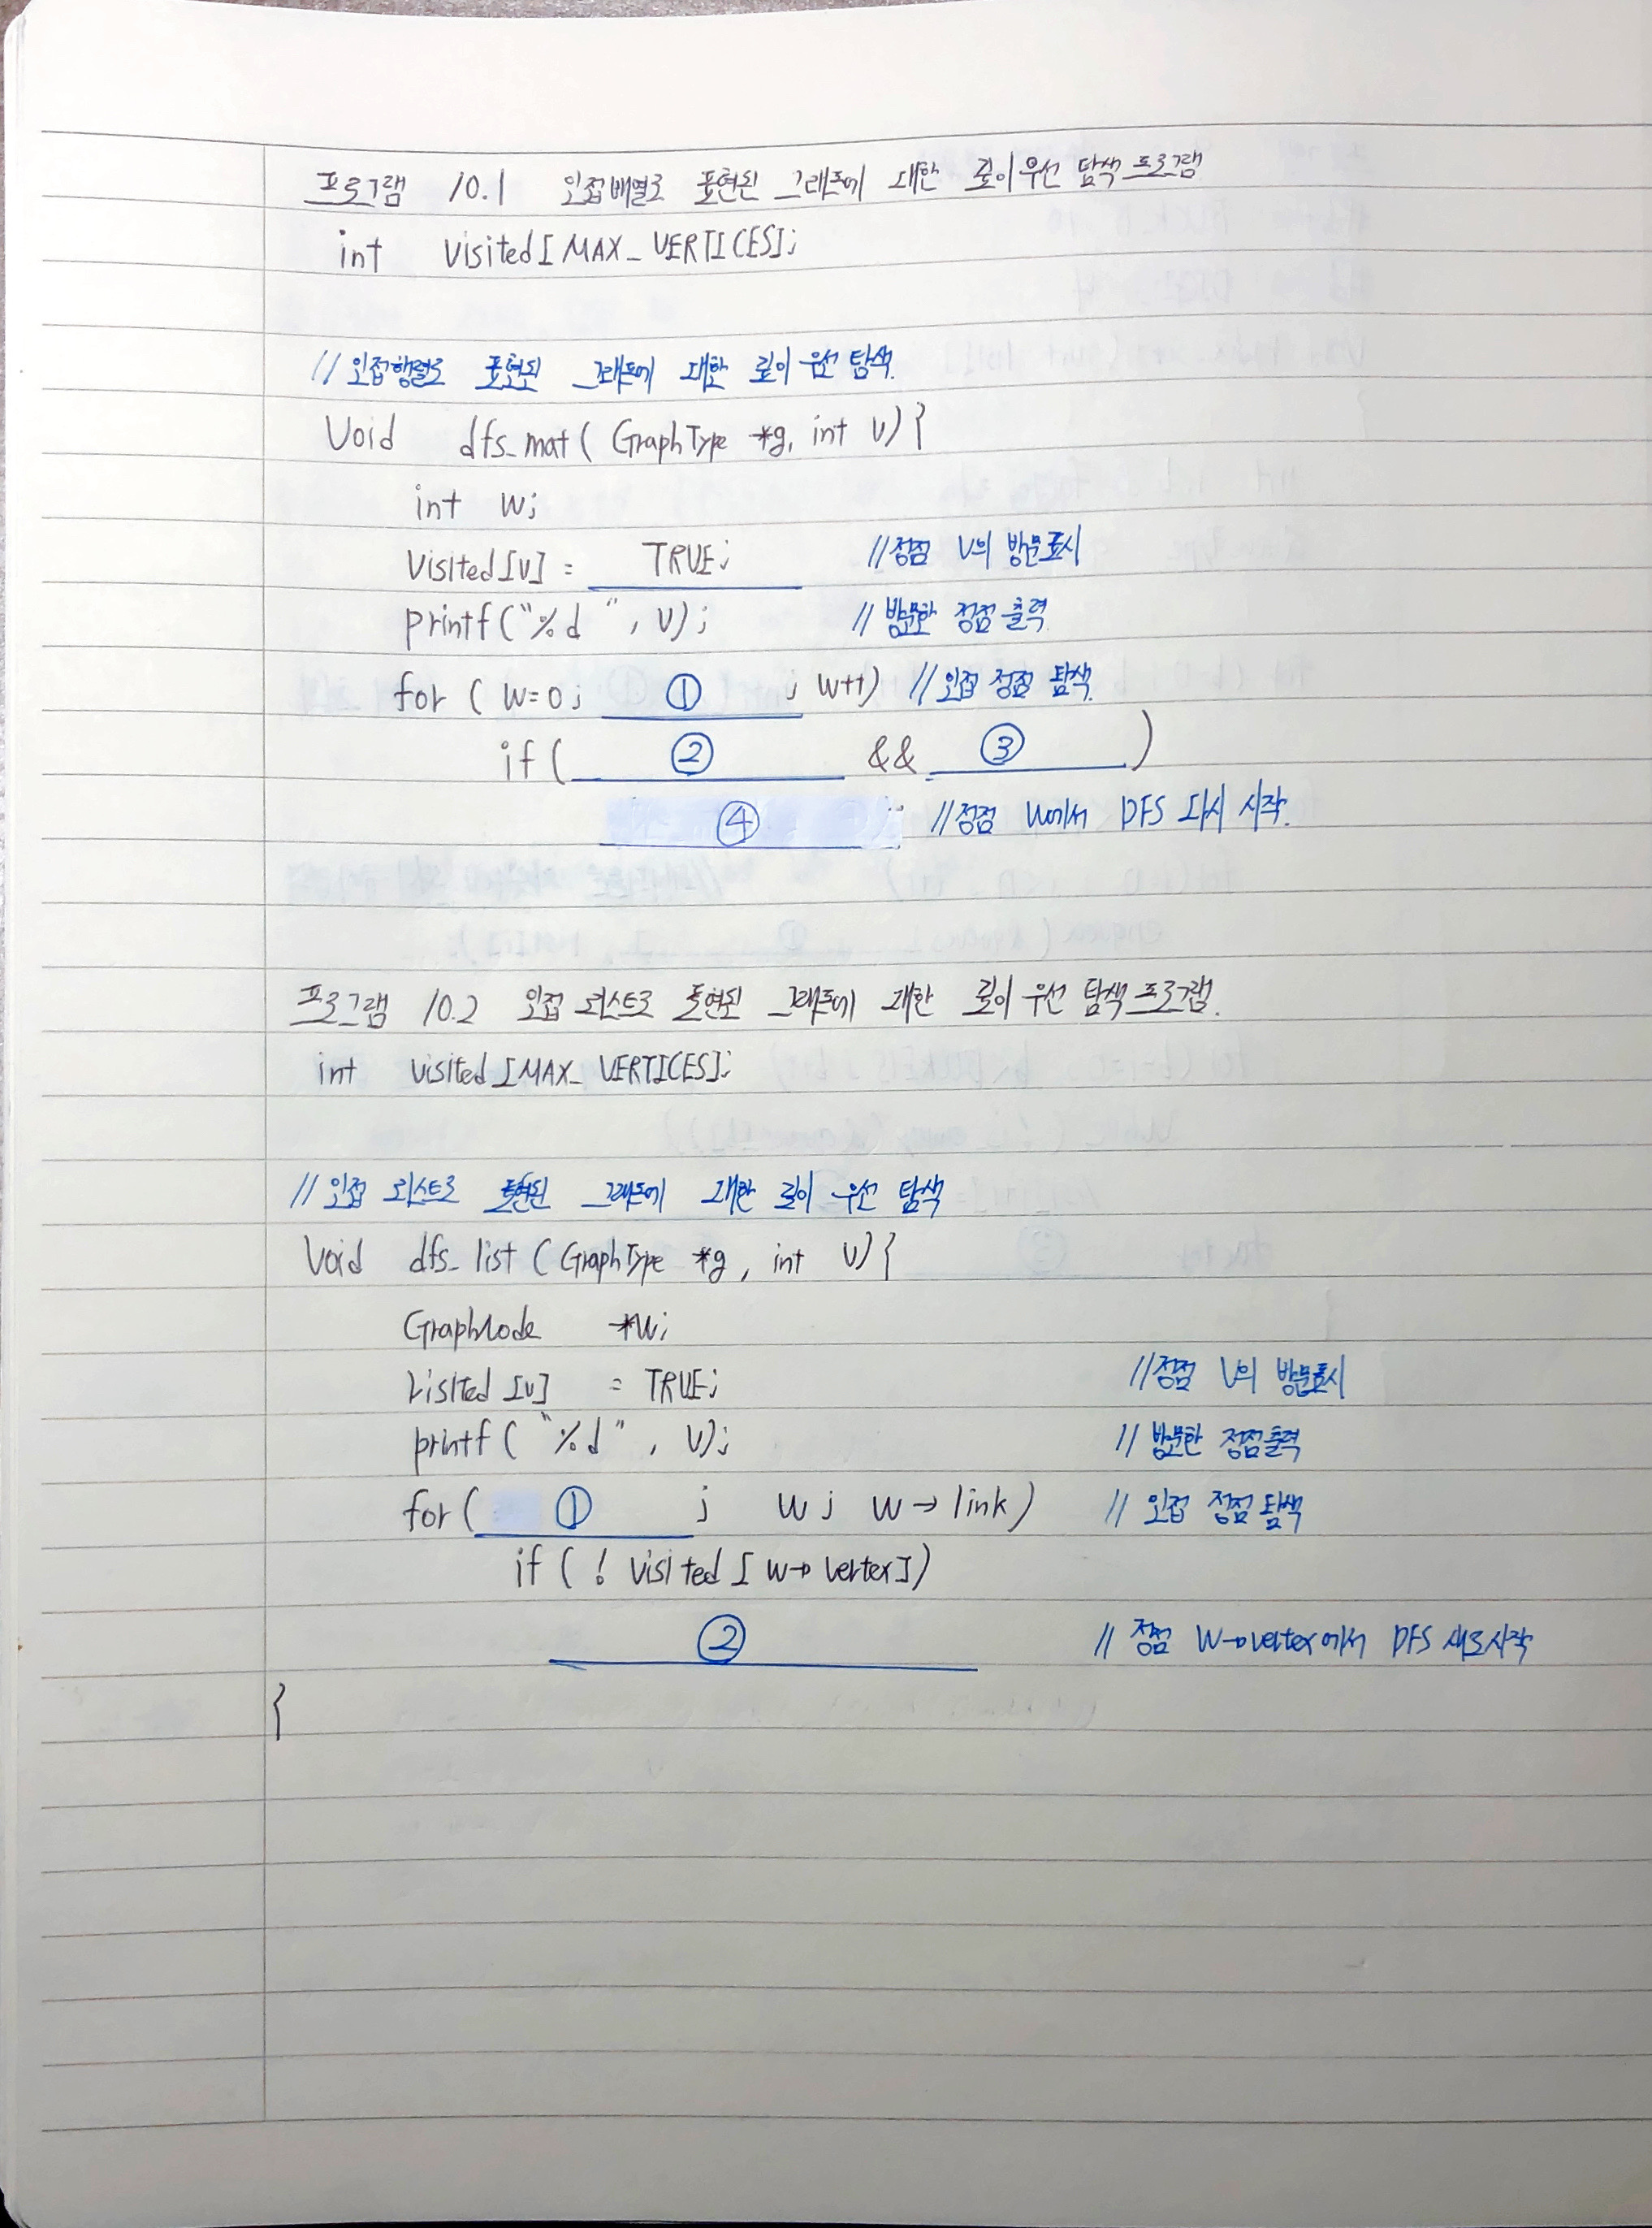 프로그램 10.1 인접배열로 표현된 그래프에 대한 깊이우선 탐색프로그램
int visited[MAX_VERTICES];
//인접행렬로 표현된 그래프에 대한 깊이 우선 탐색.
Void dfs_mat( GraphType *g, int v){
int w;
Visited[v] = TRUE; //정점 V의 방문표시
printf("%d ", v); // 방문한 정점 출력.
for ( w=0; ① ; w++) //인접 정점 탐색.
if( ② && ③ )
④ ; //정점 w에서 DFS 다시 시작.
프로그램 10.2 인접 리스트로 표현된 그래프에 대한 깊이 우선 탐색프로그램.
int visited[MAX_VERTICES];
// 인접 리스트로 표현된 그래프에 대한 깊이 우선 탐색
Void dfs_list (GraphType *g, int v){
GraphNode *w;
visited [v] = TRUE; //정점 V의 방문표시
printf( "%d", v); // 방문한 정점출력
for( ① ; w; w→link) // 인접 정점탐색
if ( ! visited [ w→vertex])
② // 정점 w→vertex에서 DFS 새로시작
}